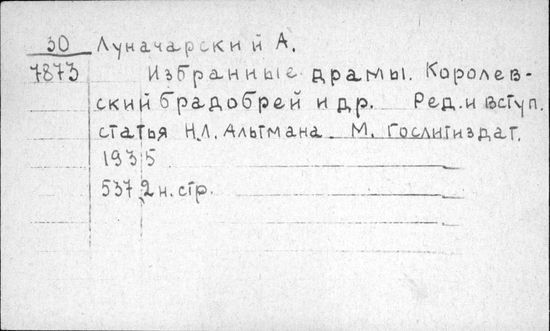 30 Луначарский А.
7873 Избранные драмы. Королев-
ский брадобрей и др. Ред. и вступ.
статья Н.Л. Альтмана. М. Гослитиздат.
1935
537, 2 н. стр.